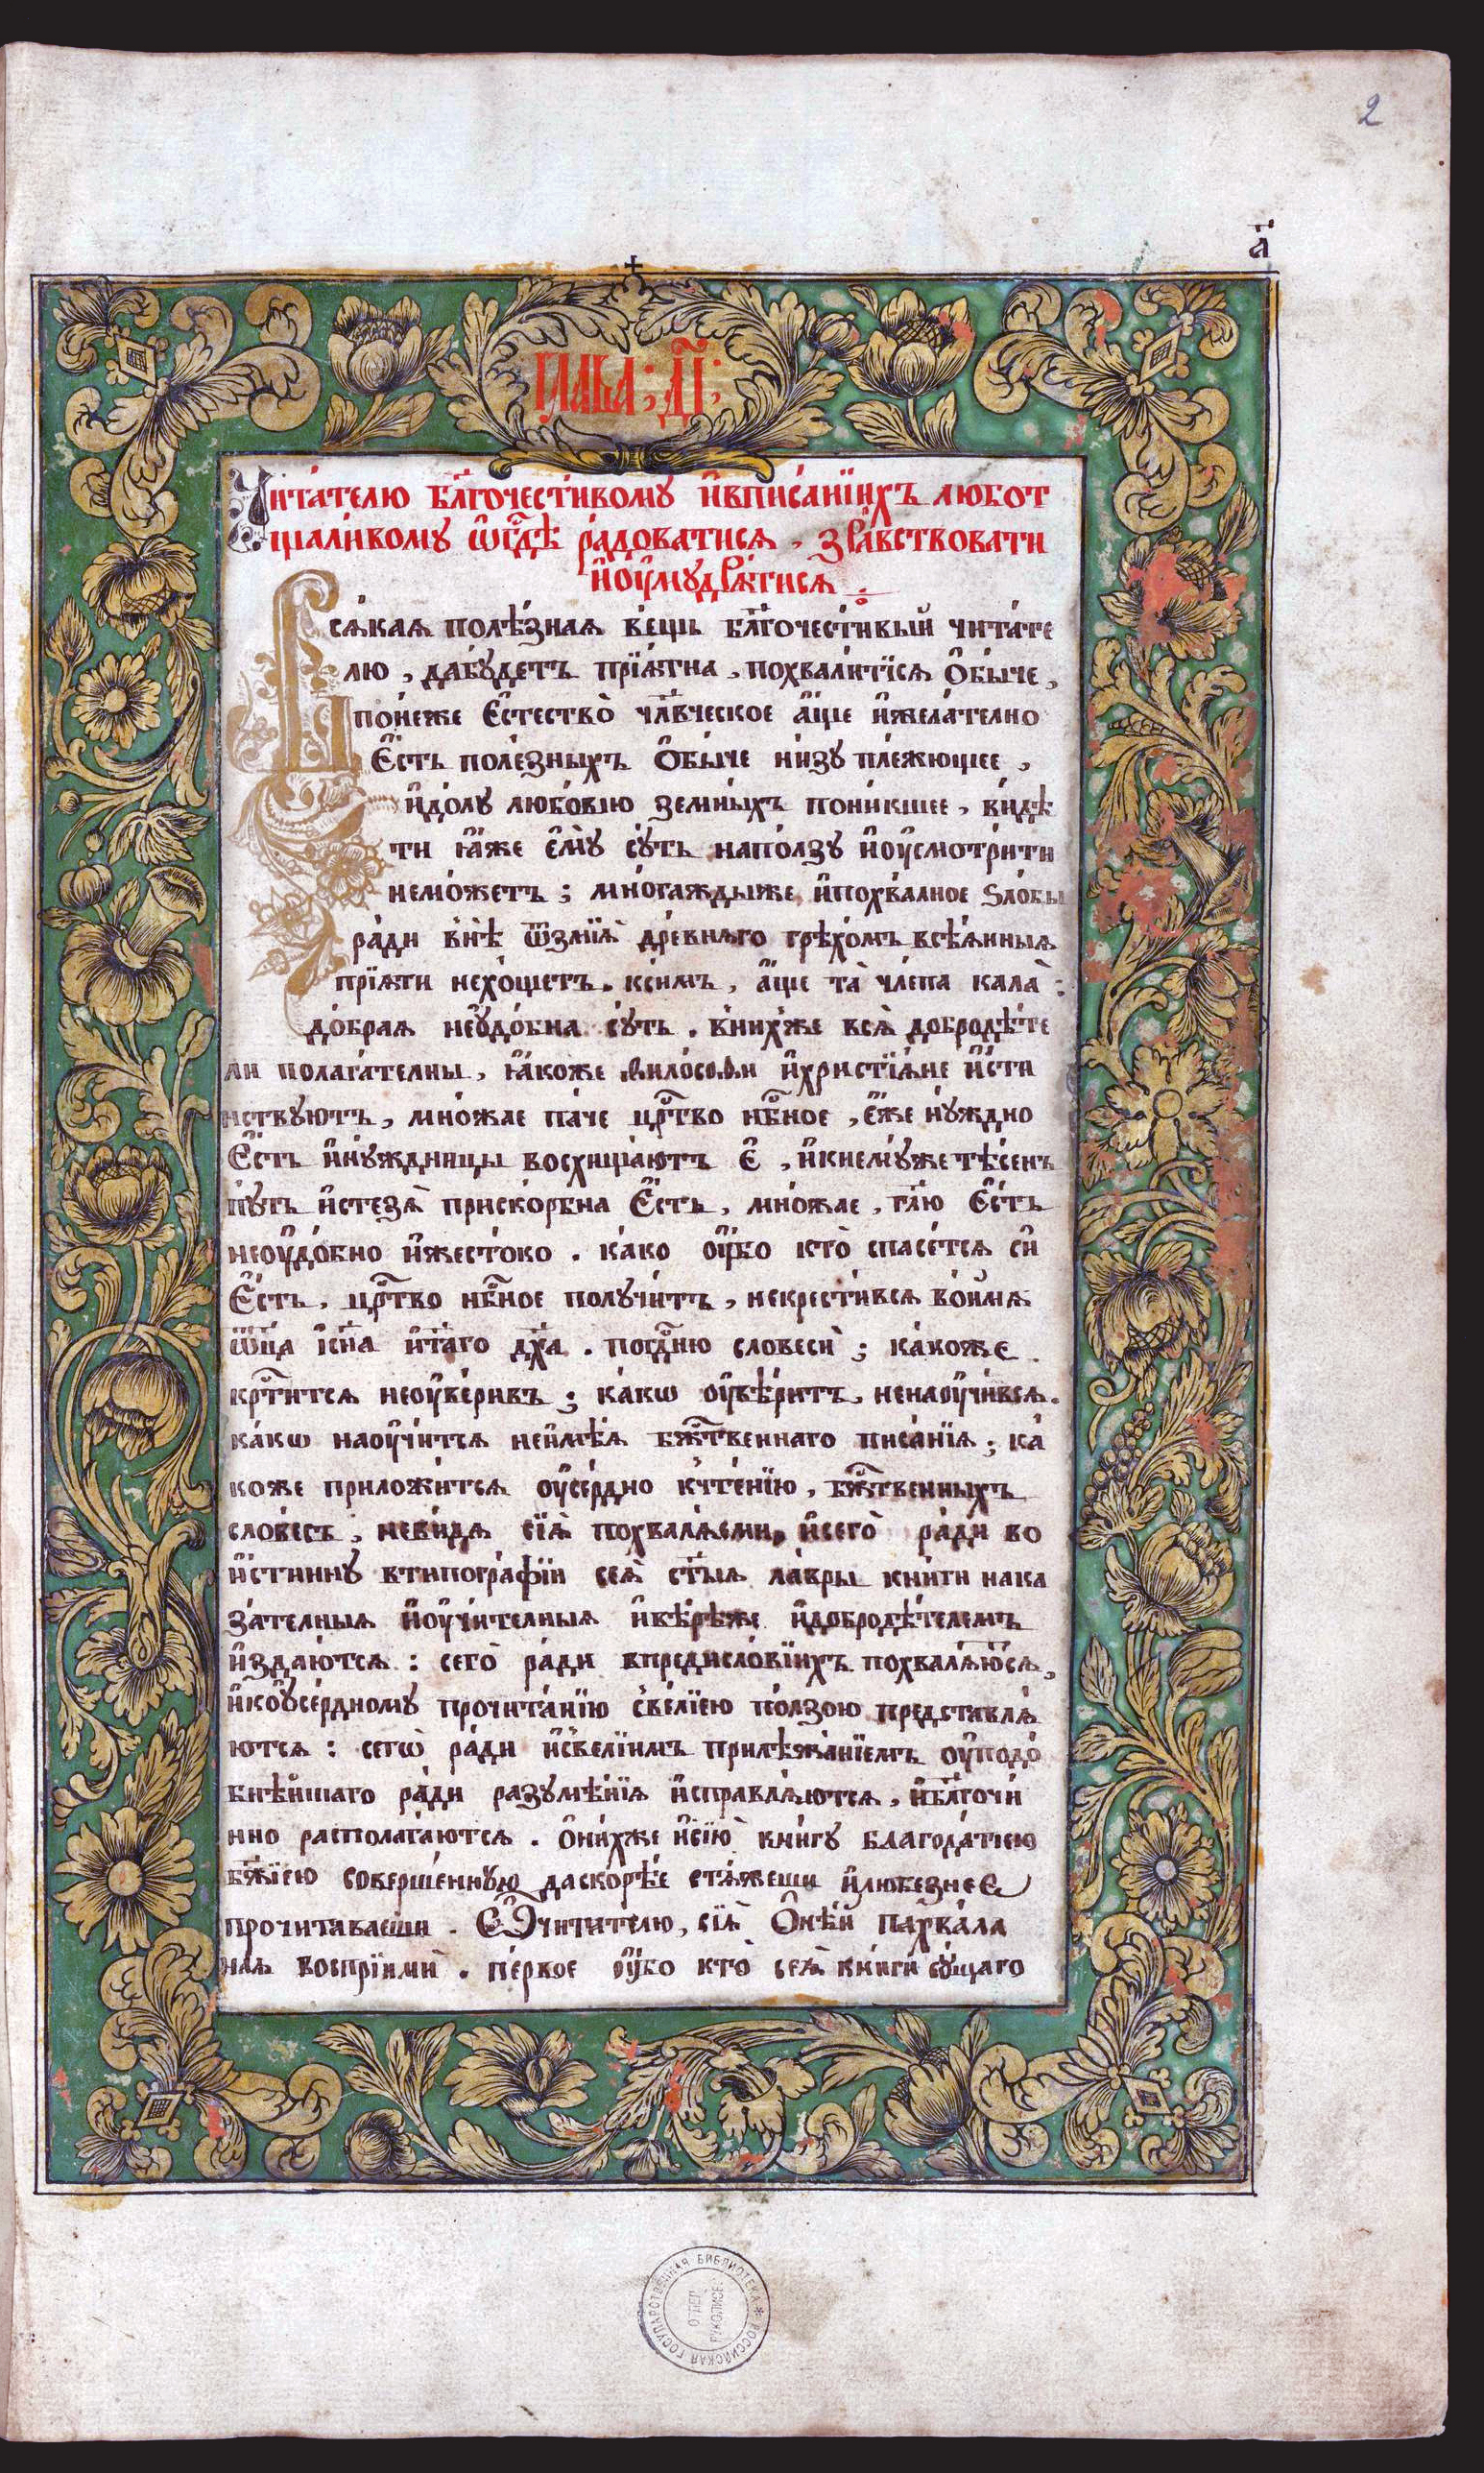 2
а҃
глава : д҃і :
Читателю бл҃гочестивому ивписанїихъ любот
щаливому ѿгд҃ѣ радоватися , здравствовати
иоумудрѧтисѧ
Всѧкаѧ полѣзнаѧ вещь бл҃гочестивый читате
лю , дабудетъ прїѧтна , похвалитїсѧ обыче ,
понеже естество чл҃вческое аще ижелателно
есть полезныхъ обыче низу плежющее ,
идолу любовїю земныхъ поникшее , видѣ
ти ꙗже ему суть наползу иоусмотрити
неможетъ ; многаждыже ипохвалное ѕлобы
ради внѣ ѿзмїѧ древнѧго грѣхомъ всѣѧнныѧ
прїѧти нехощетъ . ксимъ , аще та члепа кала :
добраѧ неудобна суть . внихже всѧ добродѣте
ли полагателны , ꙗкоже ѳилосоѳи ихристїѧне исти
нствуютъ , множае паче цр҃тво нб҃ное , еже нуждно
есть инуждницы восхищаютъ е , икнемуже тѣсенъ
путь истезѧ прискорбна есть , множае , гл҃ю есть
неоудобно ижестоко . како оубо кто спасетсѧ си
есть , цр҃тво нб҃ное получитъ , некрестивсѧ воимѧ
ѿц҃а існ҃а ист҃аго дх҃а . погд҃ню словеси ; какоже
кр҃титсѧ неоуверивъ ; какѡ оувѣритъ , ненаоучивсѧ .
какѡ наоучитсѧ неимѣѧ бж҃твеннаго писанїѧ ; ка
коже приложитсѧ оусердно кчтенїю , бж҃твенныхъ
словесъ , невидѧ сїѧ похвалѧеми , исего ради во
истинну втипографїи сеѧ ст҃ыѧ лавры книги нака
зателныѧ иоучителныѧ ивѣрѣже идобродѣтелемъ
издаютсѧ : сего ради впредисловїихъ похвалѧютсѧ ,
икоусердному прочитанїю свелїею ползою представлѧ
ютсѧ : сегѡ ради исвелїимъ прилѣжанїемъ оуподо
бнѣйшаго ради разумѣнїѧ исправлѧютсѧ , ибл҃гочи
нно располагаютсѧ . онихже исїю книгу благодатїею
бж҃їею совершенную даскорѣе стѧжеши илюбезнее
прочитаваеши . читителю , сїѧ онѣй пахвала
наѧ воспрїими . первое оубо кто сеѧ книги сущаго
РОССИЙСКАЯ ГОСУДАРСТВЕННАЯ БИБЛИОТЕКА *
ОТДЕЛ
РУКОПИСЕЙ